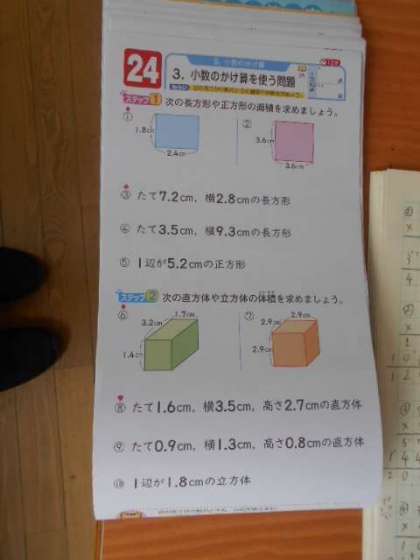 24
3. 小数のかけ算を使う問題
ステップ1 次の長方形や正方形の面積を求めましょう。
① 1.8cm 2.4cm
② 3.6cm 3.6cm
③ たて7.2cm，横2.8cmの長方形
④ たて3.5cm，横9.3cmの長方形
⑤ 1辺が5.2cmの正方形
ステップ2 次の直方体や立方体の体積を求めましょう。
⑥ 3.2cm 1.7cm 1.4cm
⑦ 2.9cm 2.9cm 2.9cm
⑧ たて1.6cm，横3.5cm，高さ2.7cmの直方体
⑨ たて0.9cm，横1.3cm，高さ0.8cmの直方体
⑩ 1辺が1.8cmの立方体